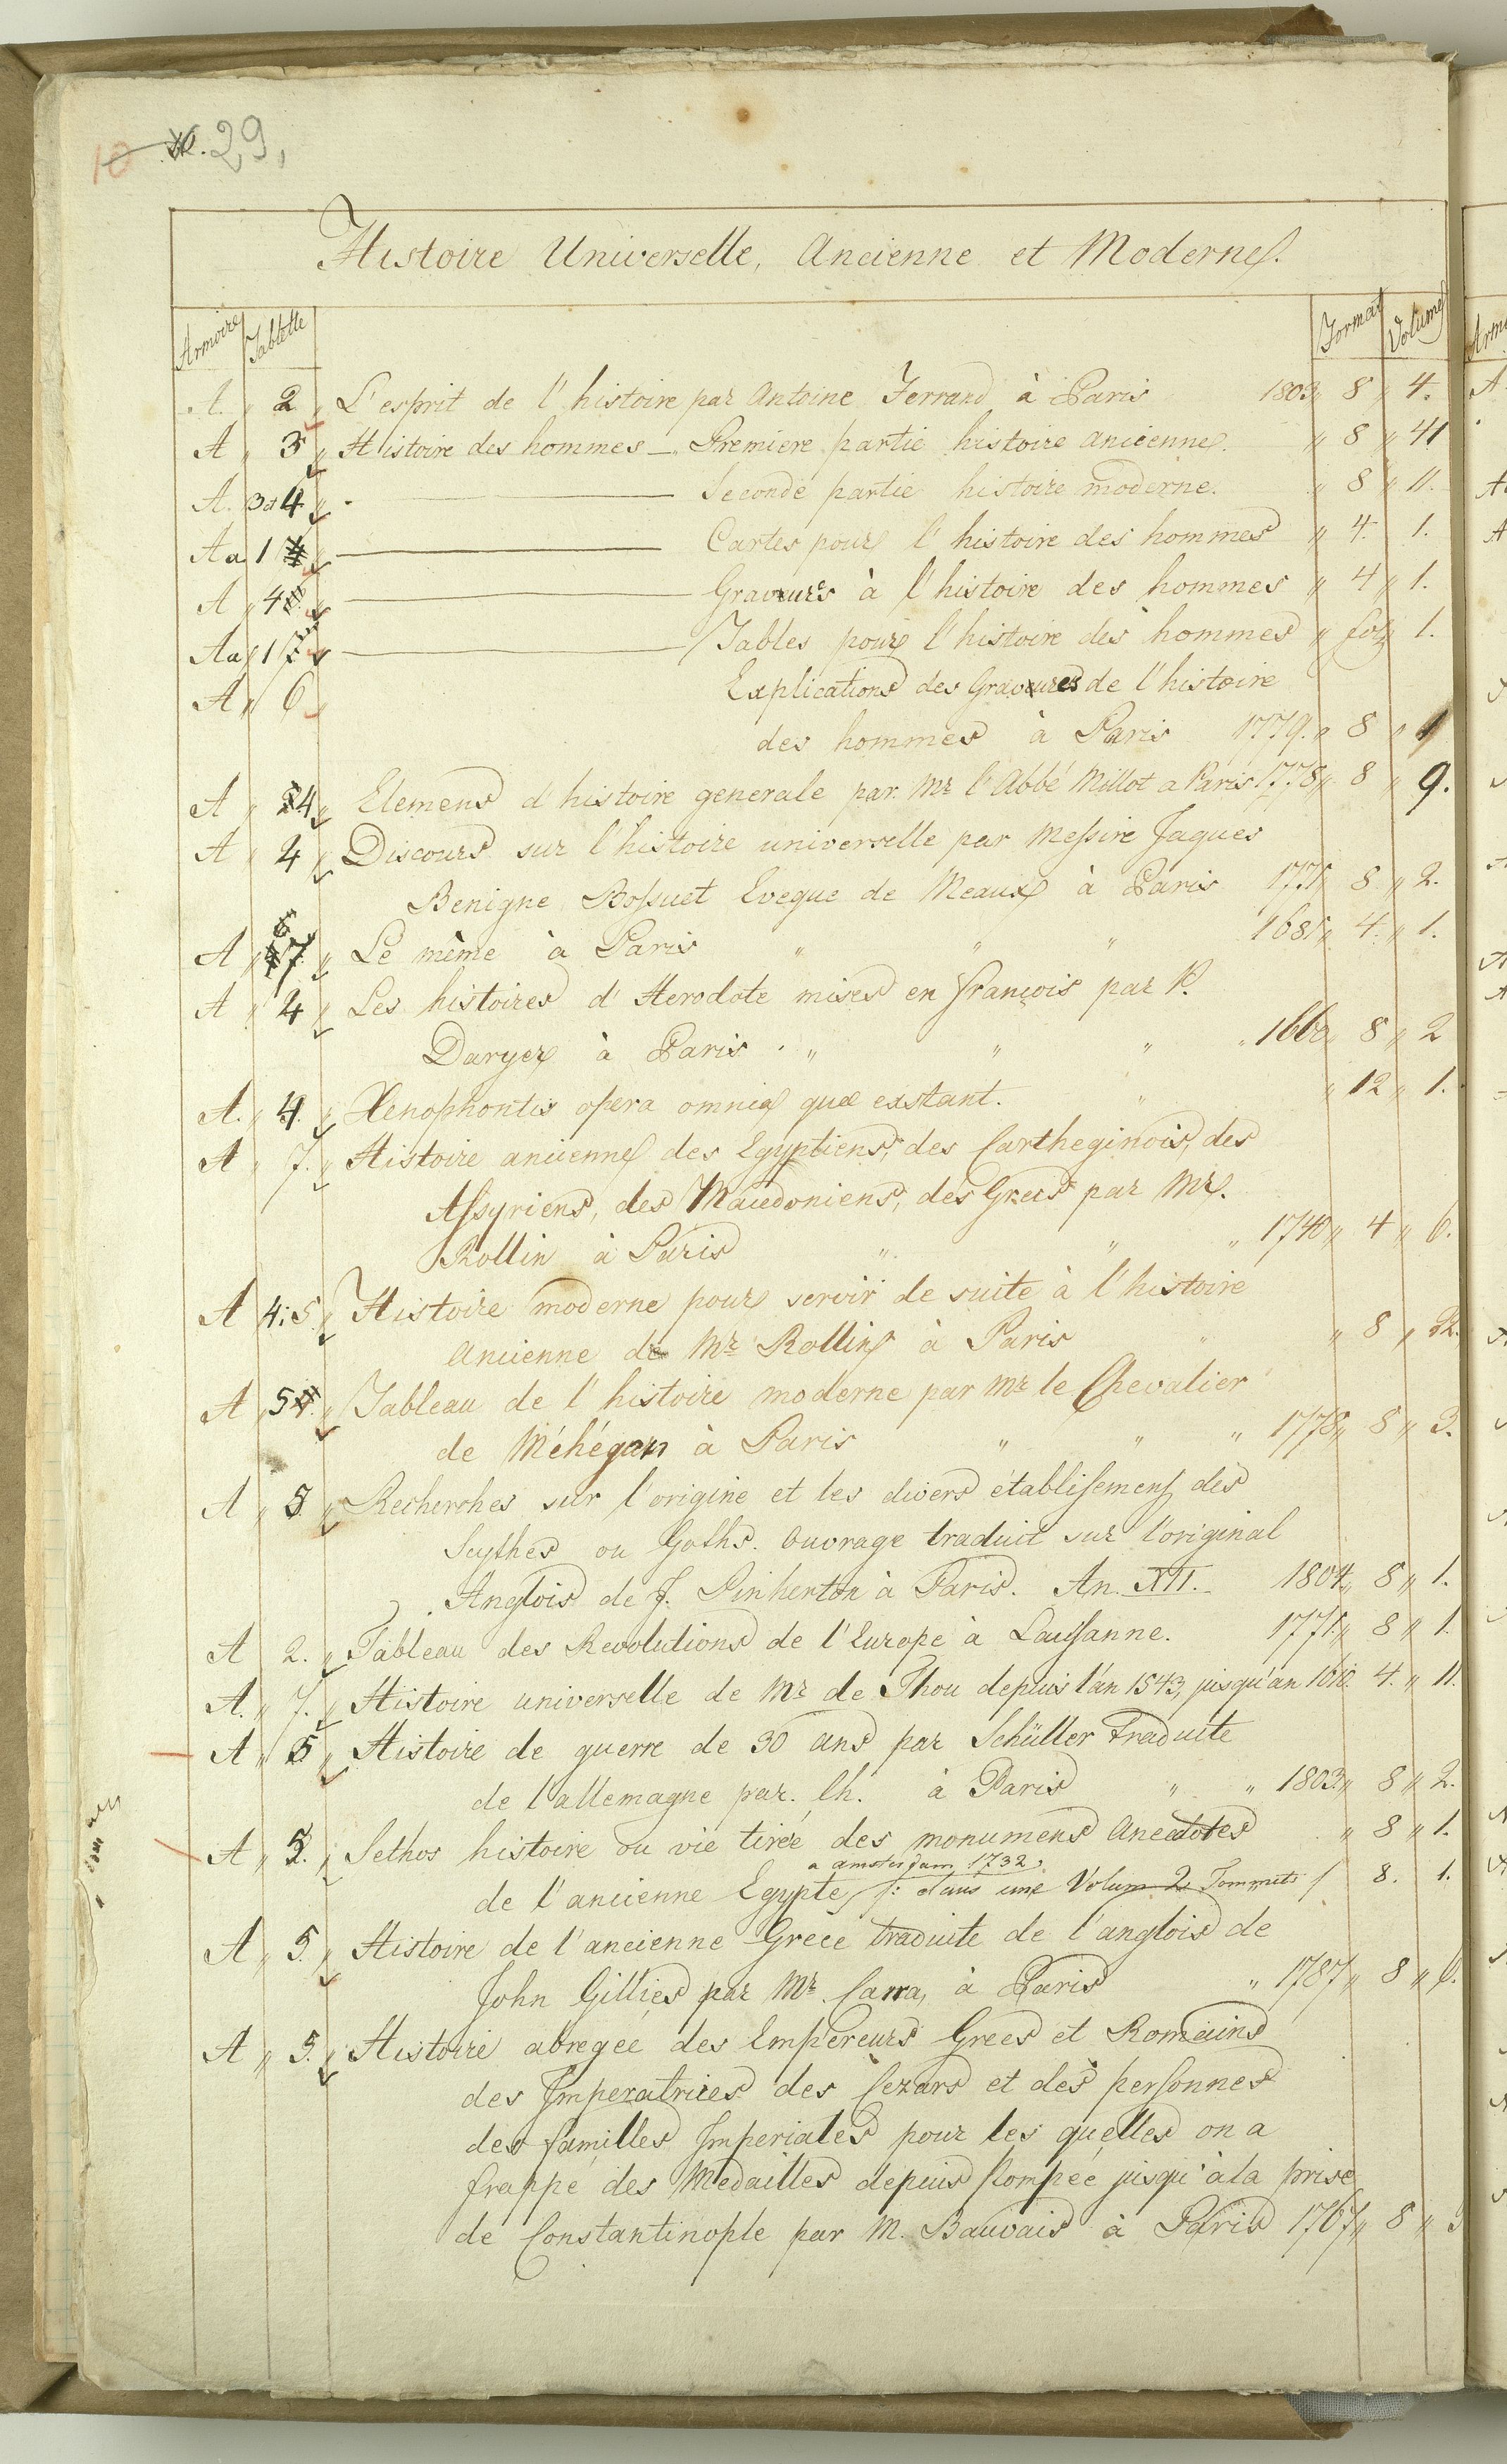 10 29,
Histoire Universelle, Ancienne et Moderne.
Armoire Tablette Format Volume
A. " 2 " L'esprit de l'histoire par Antoine Ferrand à Paris 1803 " 8 " 4.
A " 3 " Histoire des hommes — Premiere partie histoire ancienne. " 8 " 41
A. 3 et 4 " — Seconde partie histoire moderne. " 8 " 11.
Aa 1 " — Cartes pour l'histoire des hommes " 4 1.
A " 4 " — Graveurs à l'histoire des hommes " 4 " 1.
Aa 1 " — Tables pour l'histoire des hommes " fol 1.
A " 6 " Explications des Gravures de l'histoire
des hommes à Paris 1779. " 8 " 1
A " 4 " Elemens d'histoire generale par Mr l'Abbé Millot a Paris 1778 " 8 " 9.
A " 4 " Discours sur l'histoire universelle par Messire Jaques
Benigne Bossuet Eveque de Meaux à Paris 1771 " 8 " 2.
A " 6 " Le même à Paris " " " 1681 " 4. " 1.
A " 4 " Les histoires d'Herodote mises en françois par P.
Daryer à Paris " " " " 1660 " 8 " 2
A. " 4. " Xenophontis opera omnia quæ exstant. " " 12 " 1.
A " 7. " Histoire ancienne des Egyptiens, des Carthaginois, des
Assyriens, des Macedoniens, des Grecs par Mr.
Rollin à Paris " " " 1740 " 4 " 6.
A 4:5 " Histoire moderne pour servir de suite à l'histoire
Ancienne de Mr Rollin à Paris " " 8 " 22.
A " 5 " Tableau de l'histoire moderne par Mr le Chevalier
de Méhégan à Paris " " " 1778 " 8 " 3.
A " 3 " Recherches sur l'origine et les divers établissemens des
Scythes ou Goths. Ouvrage traduit sur l'original
Anglois de J. Pinherton à Paris. An. XII. 1804. " 8 " 1.
A 2. " Tableau des Revolutions de l'Europe à Laussanne. 1771. " 8 " 1.
A. " 7. " Histoire universelle de Mr de Thou depuis l'an 1543, jusqu'an 1610. 4. " 11.
A " 5 " Histoire de guerre de 30 ans par Schüller traduite
de l'allemagne par. Ch. à Paris " " 1803 " 8 " 2.
A " 3. " Sethos histoire ou vie tirée des monumens Anecdotes " 8 " 1.
a amsterdam 1732,
de l'ancienne Egypte /: dans une Volum 2 Tommes / 8. 1.
A " 5. " Histoire de l'ancienne Grece traduite de l'anglois de
John Gillies par Mr Carra, à Paris " 1787 " 8 " 6.
A " 5. " Histoire abregée des Empereurs Grecs et Romains
des Imperatrices des Cezars et des personnes
des familles Imperiales pour les quelles on a
frappé des Medailles depuis Pompée jusqu'à la prise
de Constantinople par M. Bauvais à Paris 1767 " 8 " 3